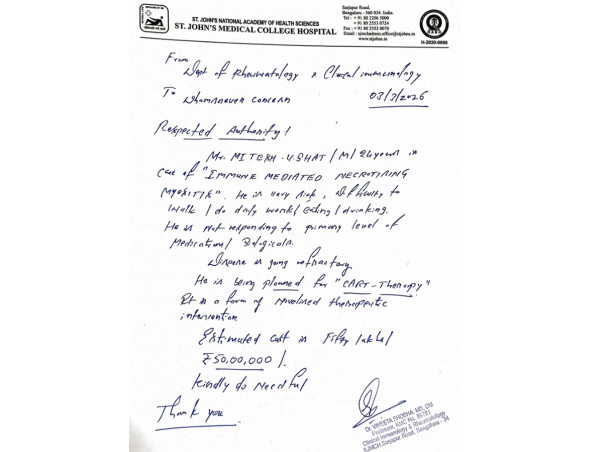 ST. JOHN'S NATIONAL ACADEMY OF HEALTH SCIENCES
ST. JOHN'S MEDICAL COLLEGE HOSPITAL
Sarjapur Road,
Bengaluru - 560 034. India.
Tel : + 91 80 2206 5000
+ 91 80 2553 0724
Fax : + 91 80 2553 0070
Email : sjmchadmin.office@stjohns.in
www.stjohns.in
H-2020-0690
From
Dept of Rheumatology & Clinical immunology
To
Whomsoever concern
03/3/2026
Respected Authority!
Mr. MITESH . U. BHAT / M / 24 years is
case of "IMMUNE MEDIATED NECROTISING
MYOSITIS". He is very sick, difficulty to
walk / do daily work / eating / drinking.
He is not responding to primary level of
Medications / Biologicals.
Disease is going refractory
He is being planned for "CART-Therapy"
It is a form of therapeutic
intervention
Estimated cost is Fifty lakhs/
₹50,00,000/.
Kindly do needful
Thank you.
Dr. VINEETA SHOBHA, MD, DM
Professor, KMC No. 
Clinical Immunology & Rheumatology
SJMCH, Sarjapur Road, Bengaluru - 34